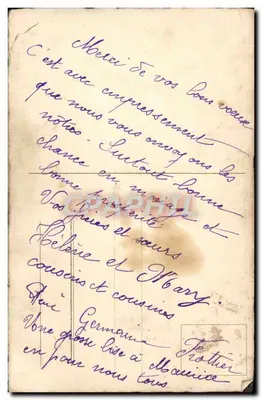 Merci de vos bons voeux
C'est avec empressement
que nous vous envoyons les
nôtres - Surtout bonne
chance en et
bonne
Vos et sœurs
Hélène et Mary.
cousins et cousines
René Germaine Trottier
Une grosse bise à Maurice
en pour nous tous